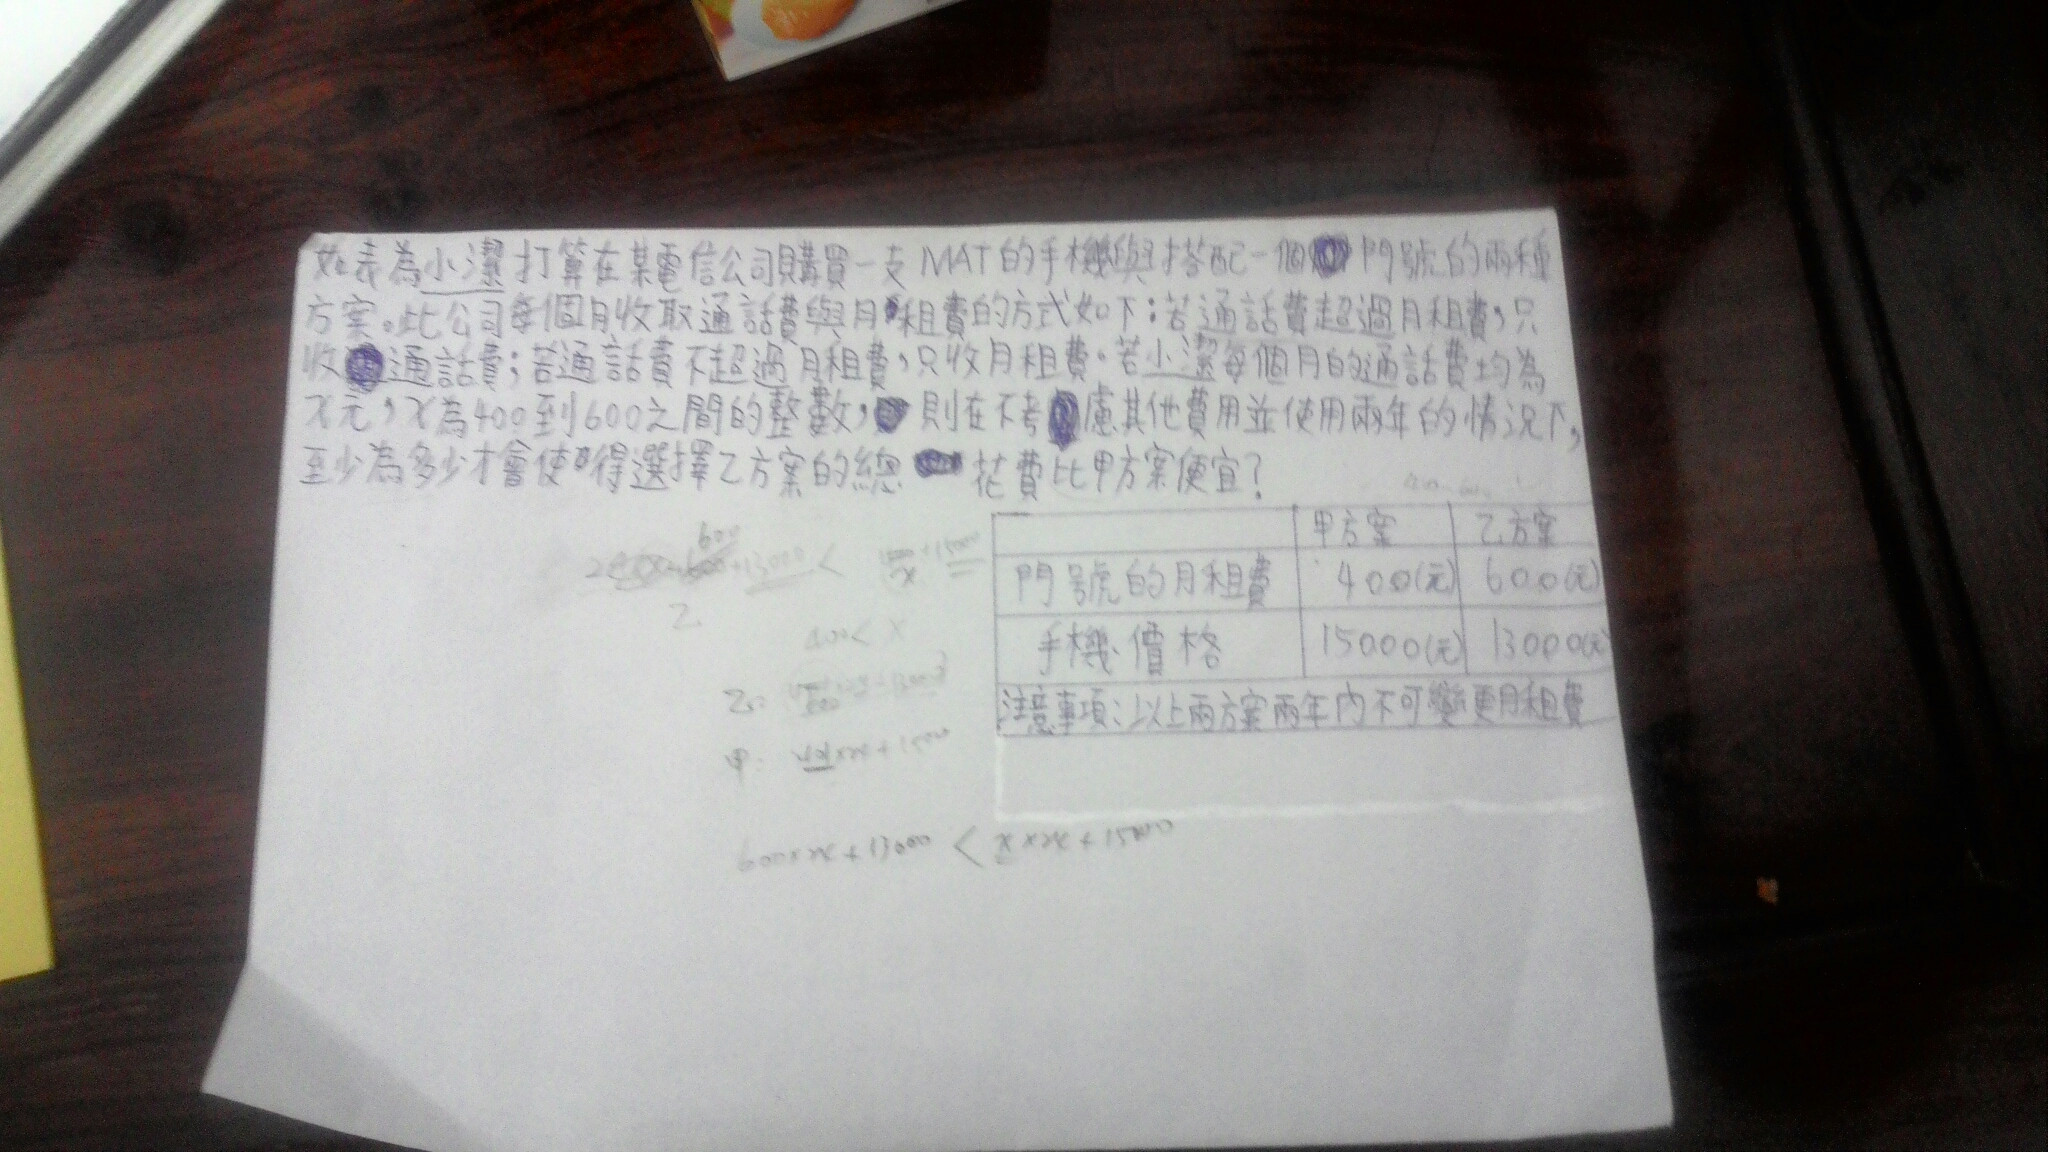 如表為小潔打算在某電信公司購買一支MAT的手機與搭配一個門號的兩種
方案。此公司每個月收取通話費與月租費的方式如下:若通話費超過月租費,只
收通話費;若通話費不超過月租費,只收月租費。若小潔每個月的通話費均為
x元,x為400到600之間的整數,則在不考慮其他費用並使用兩年的情況下,
至少為多少才會使得選擇乙方案的總花費比甲方案便宜?
甲方案 乙方案
門號的月租費 400(元) 600(元)
手機價格 15000(元) 13000(元)
注意事項:以上兩方案兩年內不可變更月租費
400< x
甲:
600×24+13000 < x×24+15000